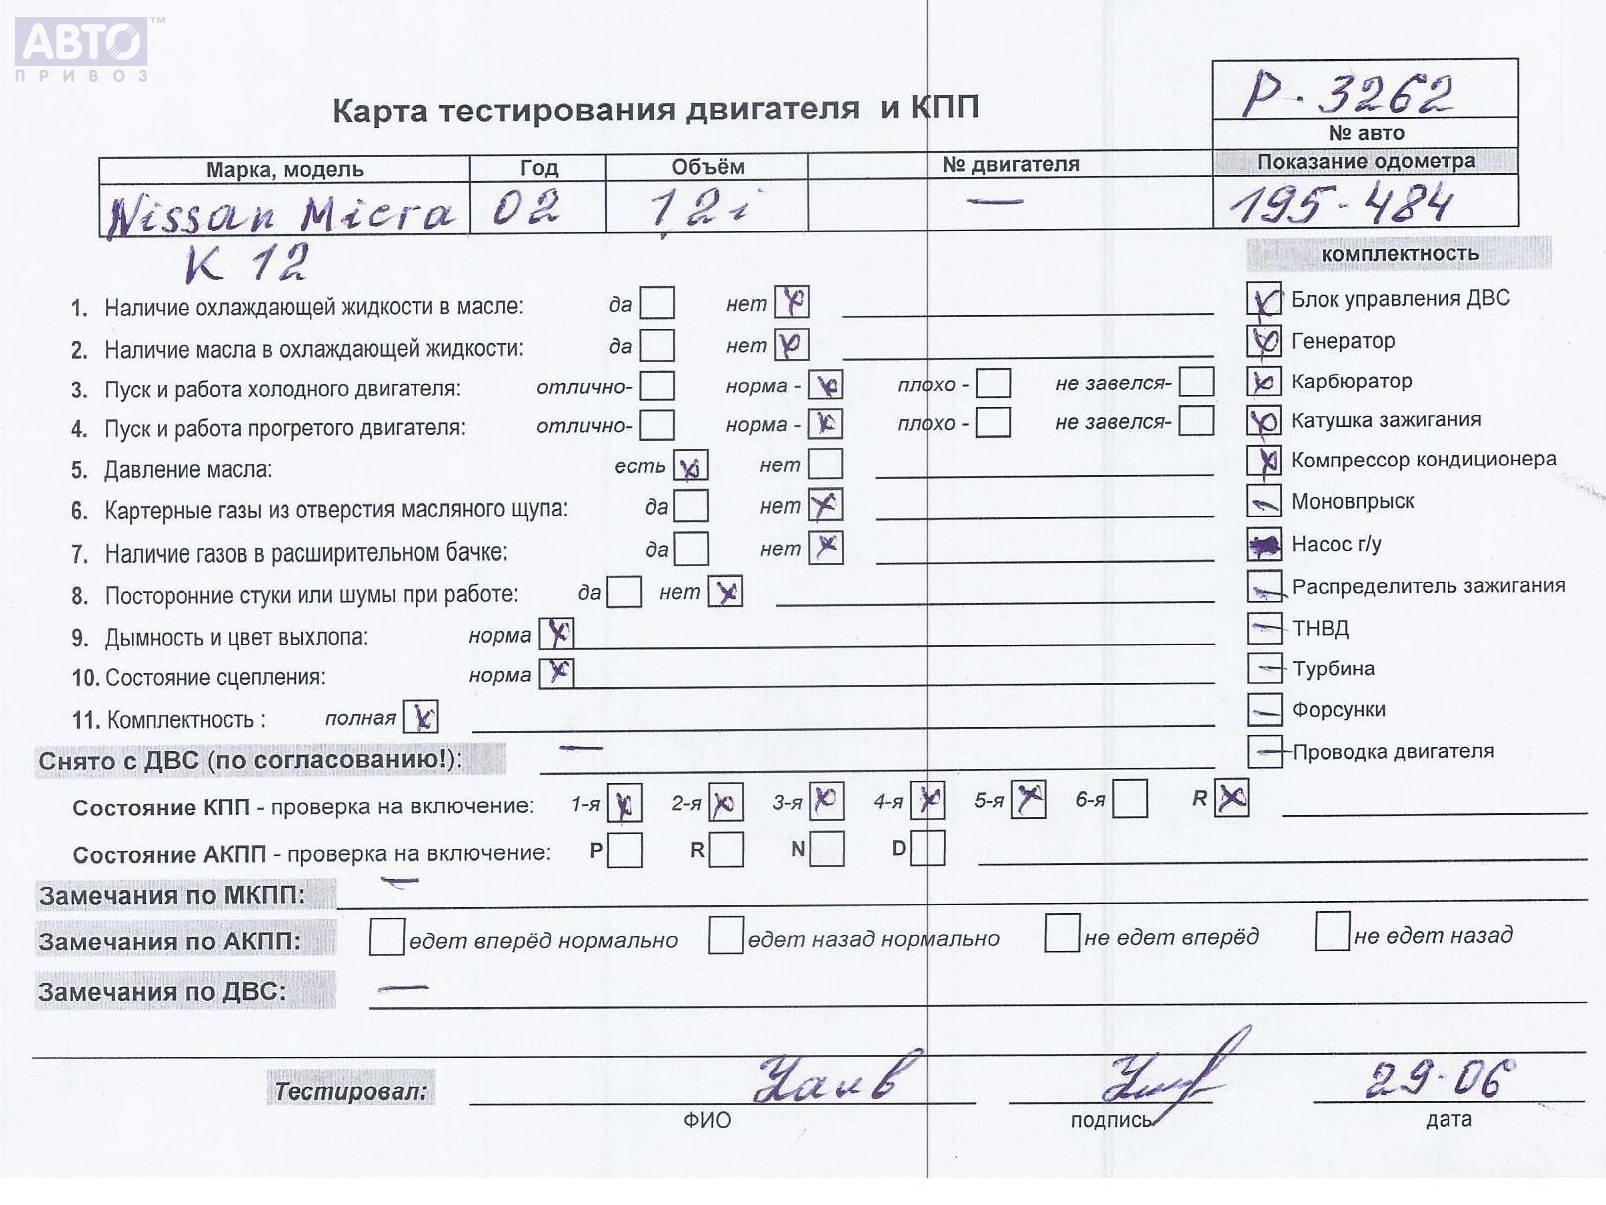 АВТО™
ПРИВОЗ
Карта тестирования двигателя и КПП
P-3262
№ авто
Марка, модель Год Объём № двигателя Показание одометра
Nissan Micra 02 1,2i — 195-484
K 12
комплектность
1. Наличие охлаждающей жидкости в масле: да нет
Блок управления ДВС
2. Наличие масла в охлаждающей жидкости: да нет
Генератор
3. Пуск и работа холодного двигателя: отлично- норма - плохо - не завелся-
Карбюратор
4. Пуск и работа прогретого двигателя: отлично- норма - плохо - не завелся-
Катушка зажигания
5. Давление масла: есть нет
Компрессор кондиционера
6. Картерные газы из отверстия масляного щупа: да нет
Моновпрыск
7. Наличие газов в расширительном бачке: да нет
Насос г/у
8. Посторонние стуки или шумы при работе: да нет
Распределитель зажигания
9. Дымность и цвет выхлопа: норма
ТНВД
10. Состояние сцепления: норма
Турбина
11. Комплектность : полная
Форсунки
Снято с ДВС (по согласованию!): —
Проводка двигателя
Состояние КПП - проверка на включение: 1-я 2-я 3-я 4-я 5-я 6-я R
Состояние АКПП - проверка на включение: P R N D
Замечания по МКПП: —
Замечания по АКПП: едет вперёд нормально едет назад нормально не едет вперёд не едет назад
Замечания по ДВС: —
Тестировал: 29-06
ФИО подпись дата